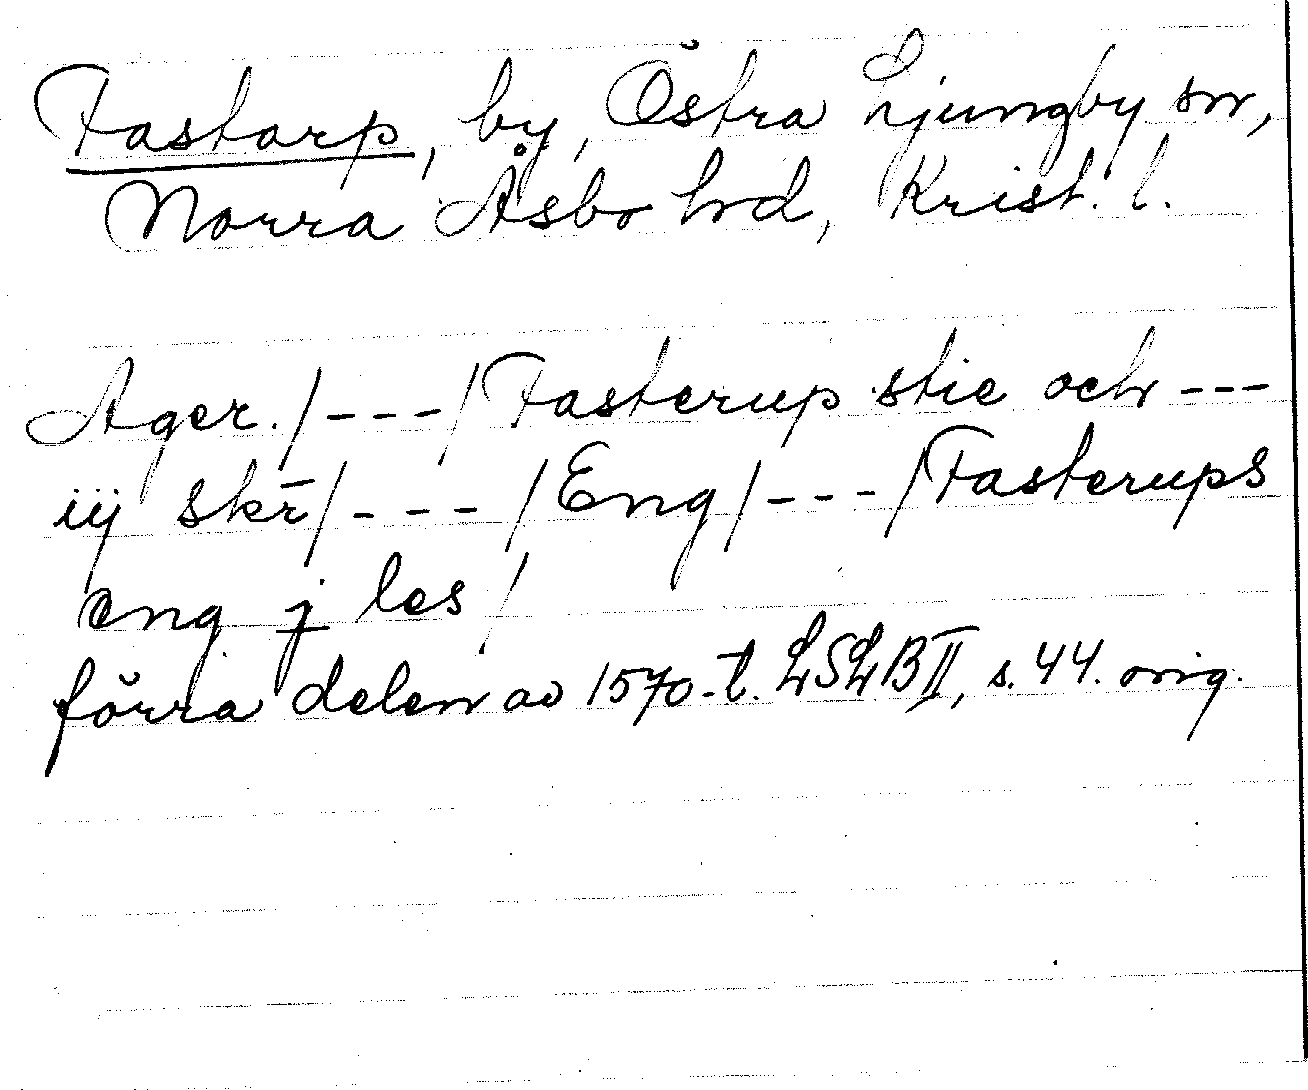 Fastarp, by, Östra Ljungby sn,
Norra Åsbo hd, Krist. l.
Ager./---/Fasterup stie och ---
iij skr̄/---/Eng/---/Fasterups
eng j les/
förra delen av 1570-t. LSLB II, s. 44. orig.